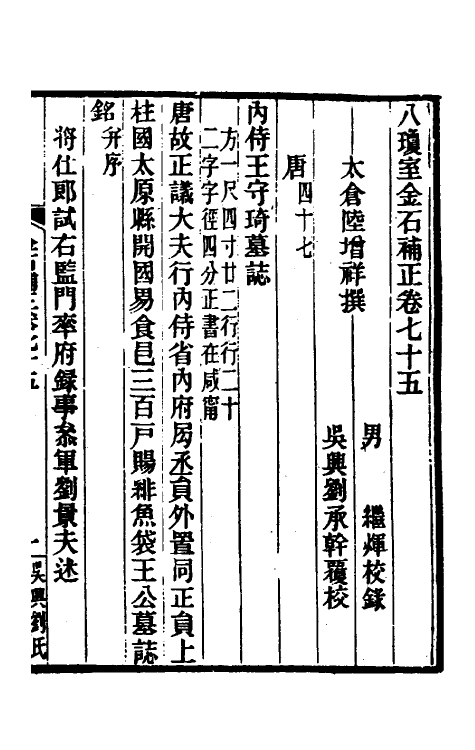 八瓊室金石補正卷七十五
男　繼煇校錄
太倉陸增祥撰
吳興劉承幹覆校
唐四十七
內侍王守琦墓誌
方一尺四寸廿二行行二十
二字字徑四分正書在咸甯
唐故正議大夫行內侍省內府局丞貟外置同正貟上
柱國太原縣開國男食邑三百戸賜緋魚袋王公墓誌
銘并序
將仕郎試右監門率府録事叅軍劉景夫述
吳興劉氏